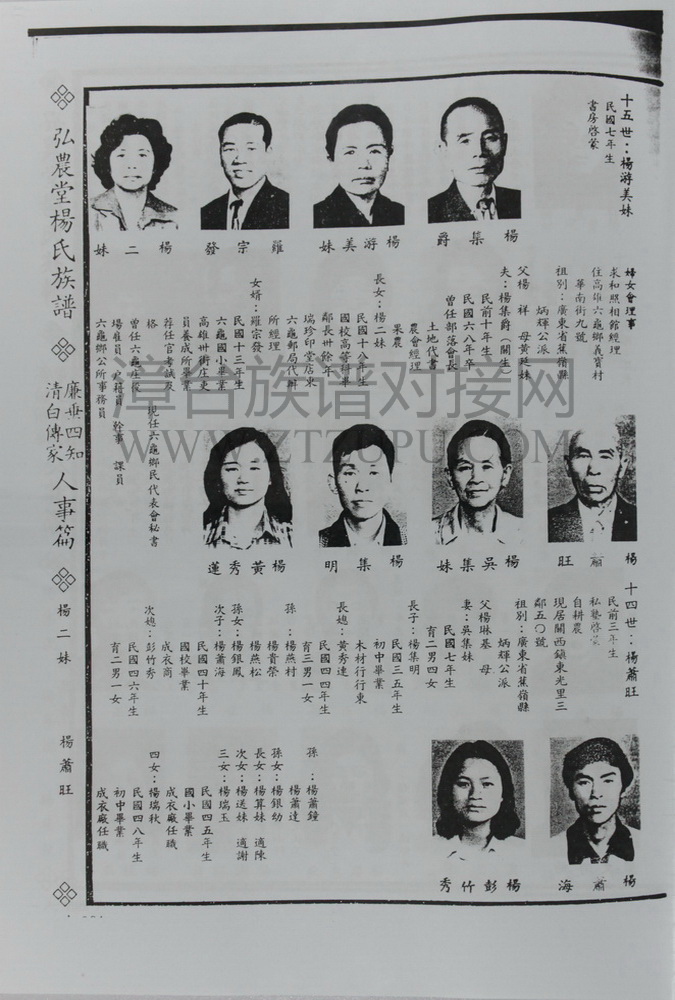 十五世：楊游美妹
民國七年生
書房啓蒙
楊集爵
楊游美妹
羅宗發
楊二妹
婦女會理事
求和照相館經理
住高雄六龜鄉義寶村
華南街九號
祖別：廣東省蕉嶺縣
炳輝公派
父楊祥 母黃廷妹
夫：楊集爵（關生）
民前十年生
民國六八年卒
曾任部落會長
土地代書
農會經理
果農
長女：楊二妹
民國十八年生
國校高等科畢
鄰長卅餘年
瑞珍印堂店東
六龜郵局代辦
所經理
女婿：羅宗發
民國十三年生
六龜國小畢業
高雄州街庄吏
員養成所畢業
荐任官考試及
格
曾任六龜庄役
場雇員 戶籍員 幹事 課員
六龜鄉公所事務員
現任六龜鄉民代表會秘書
楊蕭旺
楊吳集妹
楊集明
楊黃秀蓮
十四世：楊蕭旺
民前三年生
私塾啓蒙
自耕農
現居關西鎮東光里三
鄰五〇號
祖別：廣東省蕉嶺縣
炳輝公派
父楊琳基 母
妻：吳集妹
民國七年生
育二男四女
長子：楊集明
民國三五年生
初中畢業
木材行行東
長媳：黃秀達
民國四四年生
育三男一女
孫：楊燕村
楊貴榮
楊燕松
孫女：楊銀鳳
次子：楊蕭海
民國四十年生
國校畢業
成衣商
次媳：彭竹秀
民國四六年生
育二男一女
楊蕭海
楊彭竹秀
孫：楊蕭鐘
楊蕭達
孫女：楊銀幼
長女：楊算妹 適陳
次女：楊送妹 適謝
三女：楊瑞玉
民國四五年生
國小畢業
成衣廠任職
四女：楊瑞秋
民國四八年生
初中畢業
成衣廠任職
弘農堂楊氏族譜
廉垂四知
清白傳家
人事篇
楊二妹
楊蕭旺
漳台族谱对接网
WWW.ZTZUPU.COM